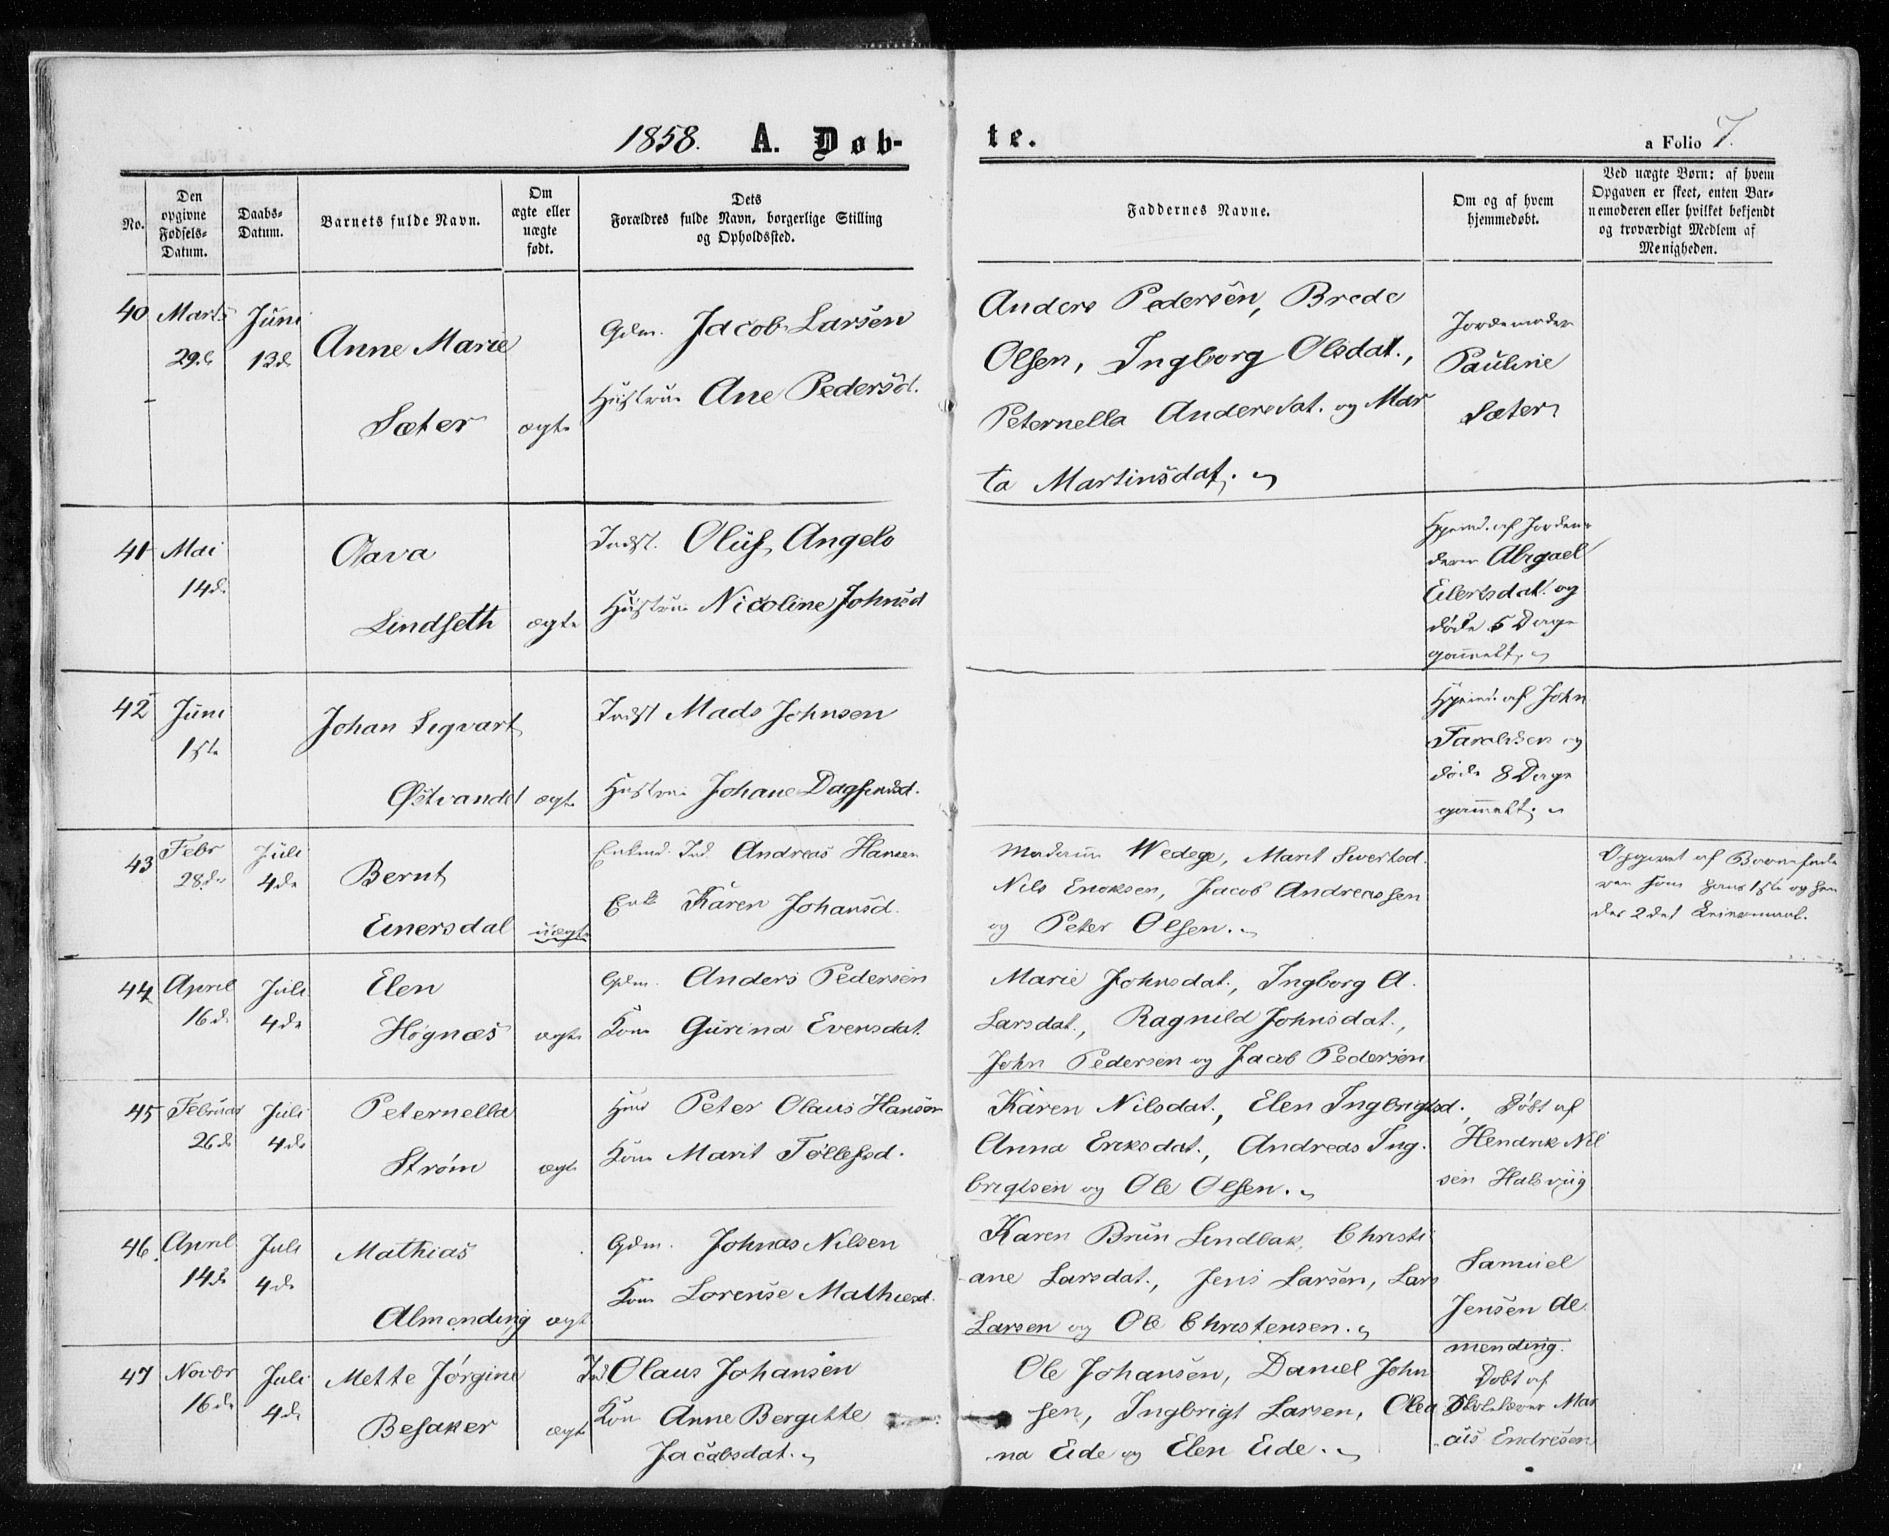 1858. A. Døb-
te.
a Folio 7.
No.
Den opgivne Fødsels-Datum.
Daabs-Datum.
Barnets fulde Navn.
Om ægte eller uægte født.
Dets Forældres fulde Navn, borgerlige Stilling og Opholdssted.
Faddernes Navne.
Om og af hvem hjemmedøbt.
Ved uægte Børn: af hvem Opgaven er skeet, enten Barnemoderen eller hvilket bekjendt og troværdigt Medlem af Menigheden.
40 Marts Juni
29de 13de
Anne Marie
Sæter ægte
Gdm. Jacob Larsen
Hustru Ane Pedersd.
Anders Pedersen, Brede
Olsen, Ingborg Olsdat.,
Peternella Andersdat. og Mar
ta Martinsdat.
Jordemoder
Pauline
Sæter
41 Mai
14de
Olava
Lindseth ægte
Indst. Oluf Angelo
Hustru Nicoline Johnsd
Hjemd. af Jordem
deren Abigael
Eilertsdat. og
døde 5 Dage
gammelt.
42 Juni
1ste
Johan Sigvart
Østvandet ægte
Indst Mads Johnsen
Hustru Johane Dagfinsd.
Hjemd. af John
Taraldsen og
døde 8 Dage
gammelt.
43 Febr Juli
28de 4de
Bernt
Einersdal uægte
Enkmd. Ind. Andreas Hansen
Enke Karen Johansd.
Madam Wedege, Marit Sivertsd.
Nils Enoksen, Jacob Andreassen
og Peter Olsen.
Opgivet af Barnefade
ren som hans 1ste og hen
des 2det Leiermaal.
44 April Juli
16de 4de
Elen
Høgnæs ægte
Gdm. Anders Pedersen
Kone Gurina Evensdat.
Marie Johnsdat., Ingborg A.
Larsdat., Ragnild Johnsdat.,
John Pedersen og Jacob Pedersen
45 Februar Juli
26de 4de
Peternella
Strøm ægte
Peter Olaus Hansen
Kone Marit Tollefsd.
Karen Nilsdat., Elen Ingbrigtsd.,
Anna Eriksdat., Andreas Ing.
brigtsen og Ole Olsen.
Døbt af
Hendrik Nil
sen Halsviig
46. April Juli
14de 4de
Mathias
Almending ægte
Gdm. Johnas Nilsen
Kone Lorense Mathiesd.
Karen Brun Lindbak, Christi
ane Larsdat., Jens Larsen, Lars
Larsen og Ole Christensen.
Samuel
Jensen Al
mending.
47 Novbr Juli
16de 4de
Mette Jørgine
Besaker ægte
Ind Olaus Johansen
Kone Anne Bergitte
Jacobsdat.
Ole Johansen, Daniel John
sen, Ingbrigt Larsen, Olea
na Eide og Elen Eide.
Døbt af
Skolelærer Mar
cus Endresen